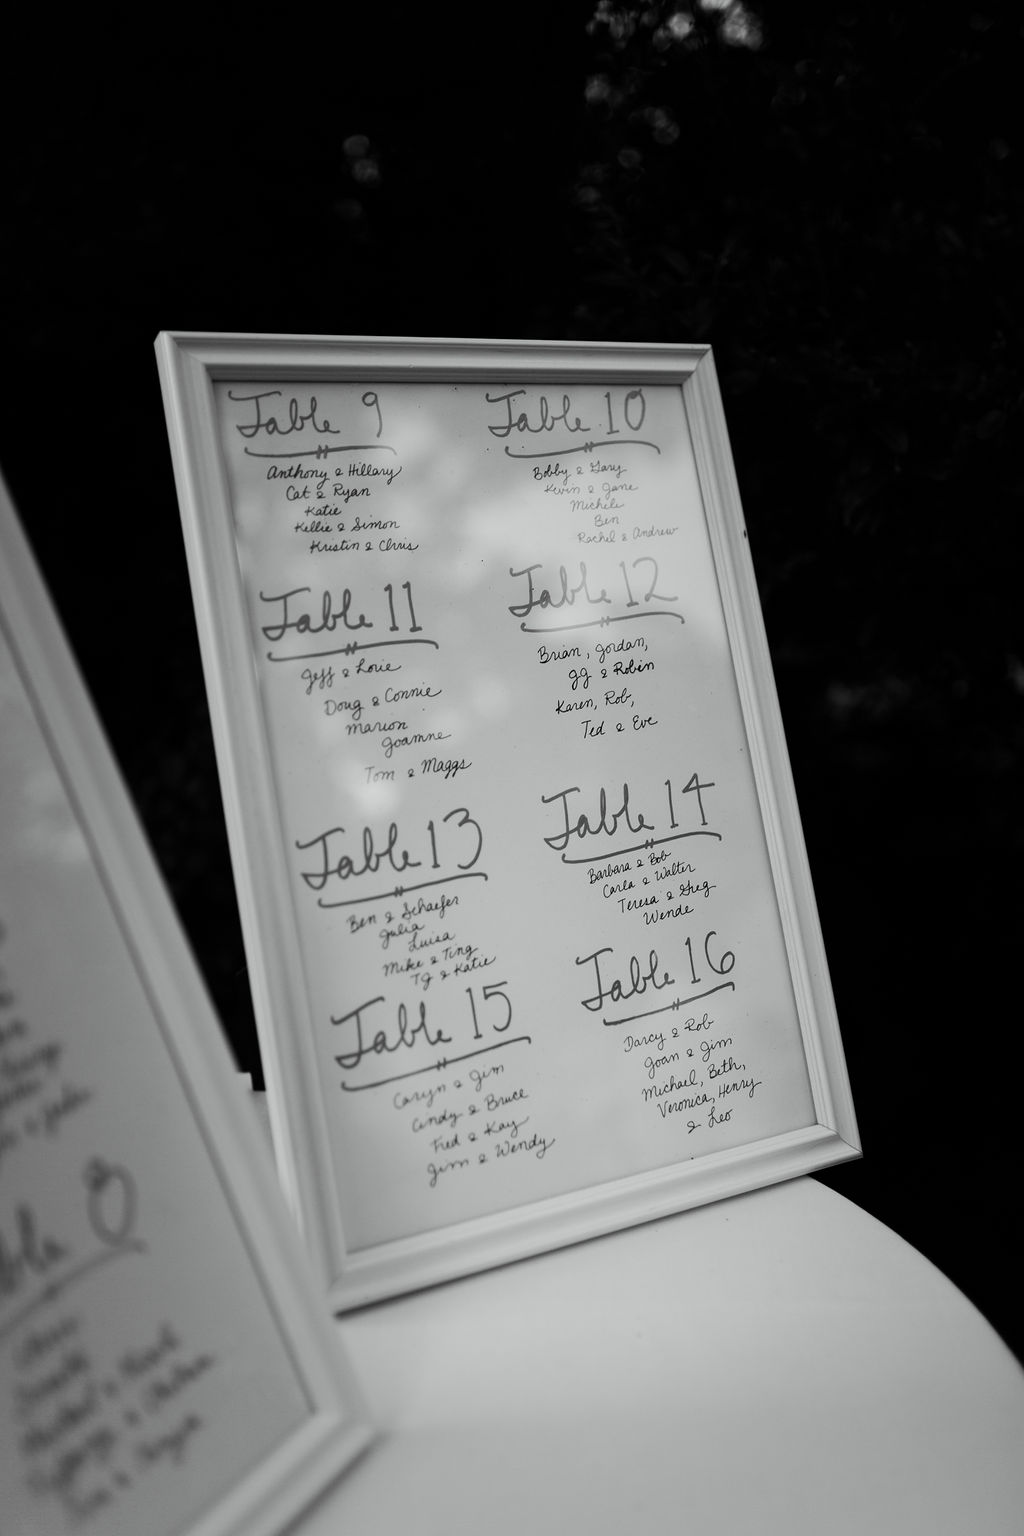 Table 9
Anthony & Hillary
Cat & Ryan
Katie
Kellie & Simon
Kristin & Chris
Table 10
Bobby & Gary
Kevin & Jane
Michele
Ben
Rachel & Andrew
Table 11
Jeff & Lorie
Doug & Connie
Marion
Joanne
Tom & Maggs
Table 12
Brian, Jordan,
JJ & Robin
Karen, Rob,
Ted & Eve
Table 13
Ben & Schaefer
Julia
Luisa
Mike & Ting
TJ & Katie
Table 14
Barbara & Bob
Carla & Walter
Teresa & Greg
Wende
Table 15
Caryn & Jim
Cindy & Bruce
Fred & Kay
Jim & Wendy
Table 16
Darcy & Rob
Joan & Jim
Michael, Beth,
Veronica, Henry
& Leo